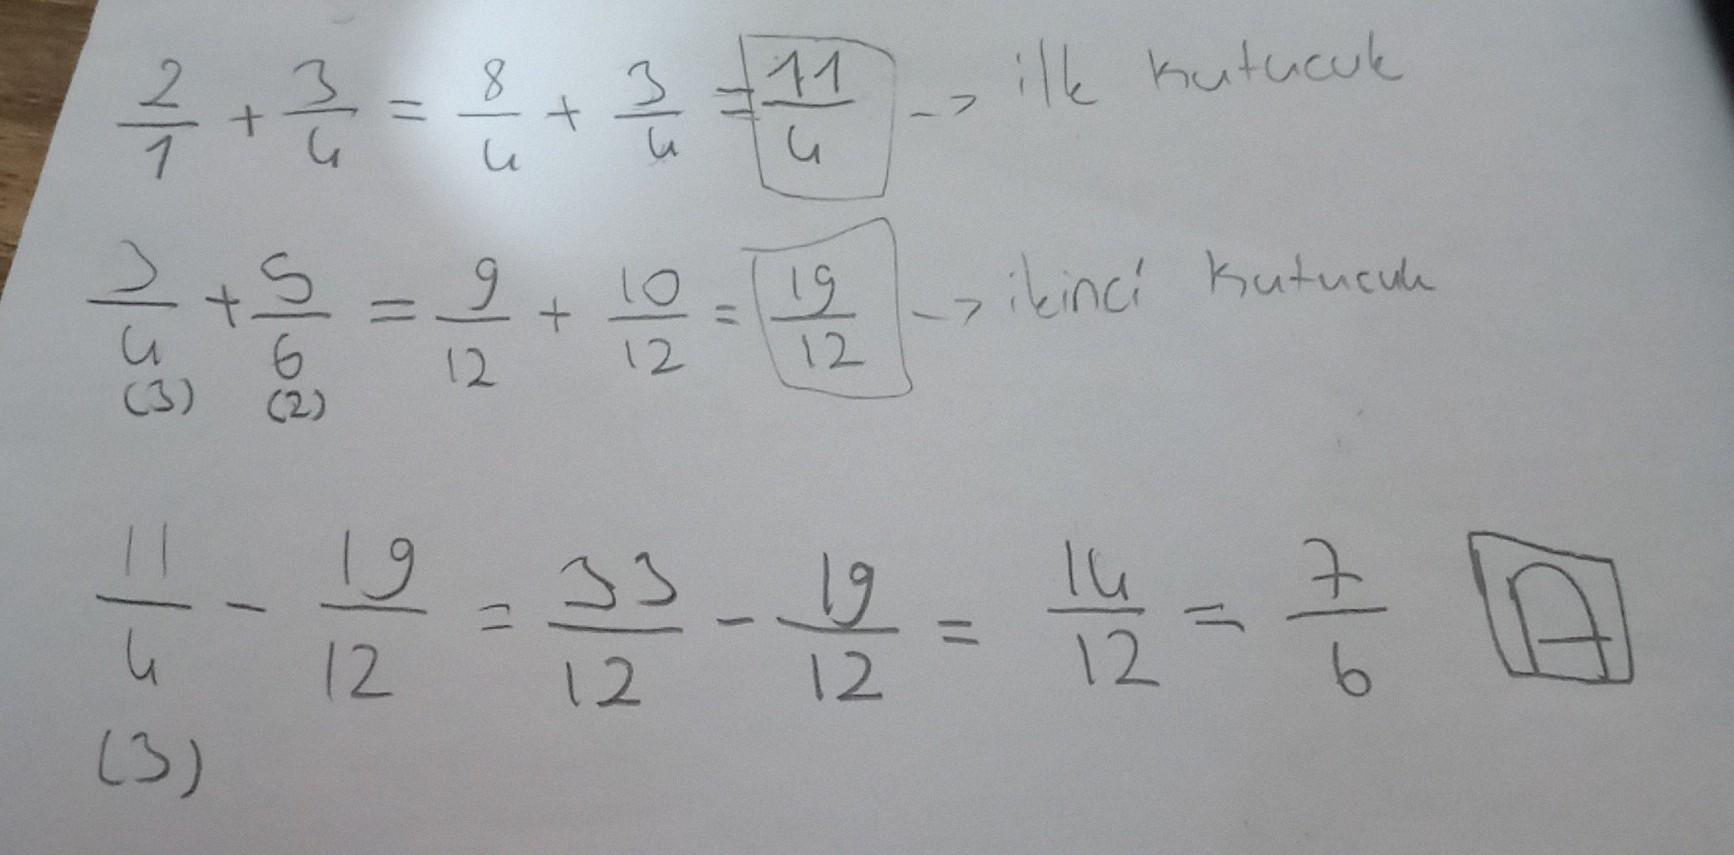 2/1 + 3/4 = 8/4 + 3/4 = 11/4 -> ilk kutucuk
3/4 + 5/6 = 9/12 + 10/12 = 19/12 -> ikinci kutucuk
(3) (2)
11/4 - 19/12 = 33/12 - 19/12 = 14/12 = 7/6 A
(3)